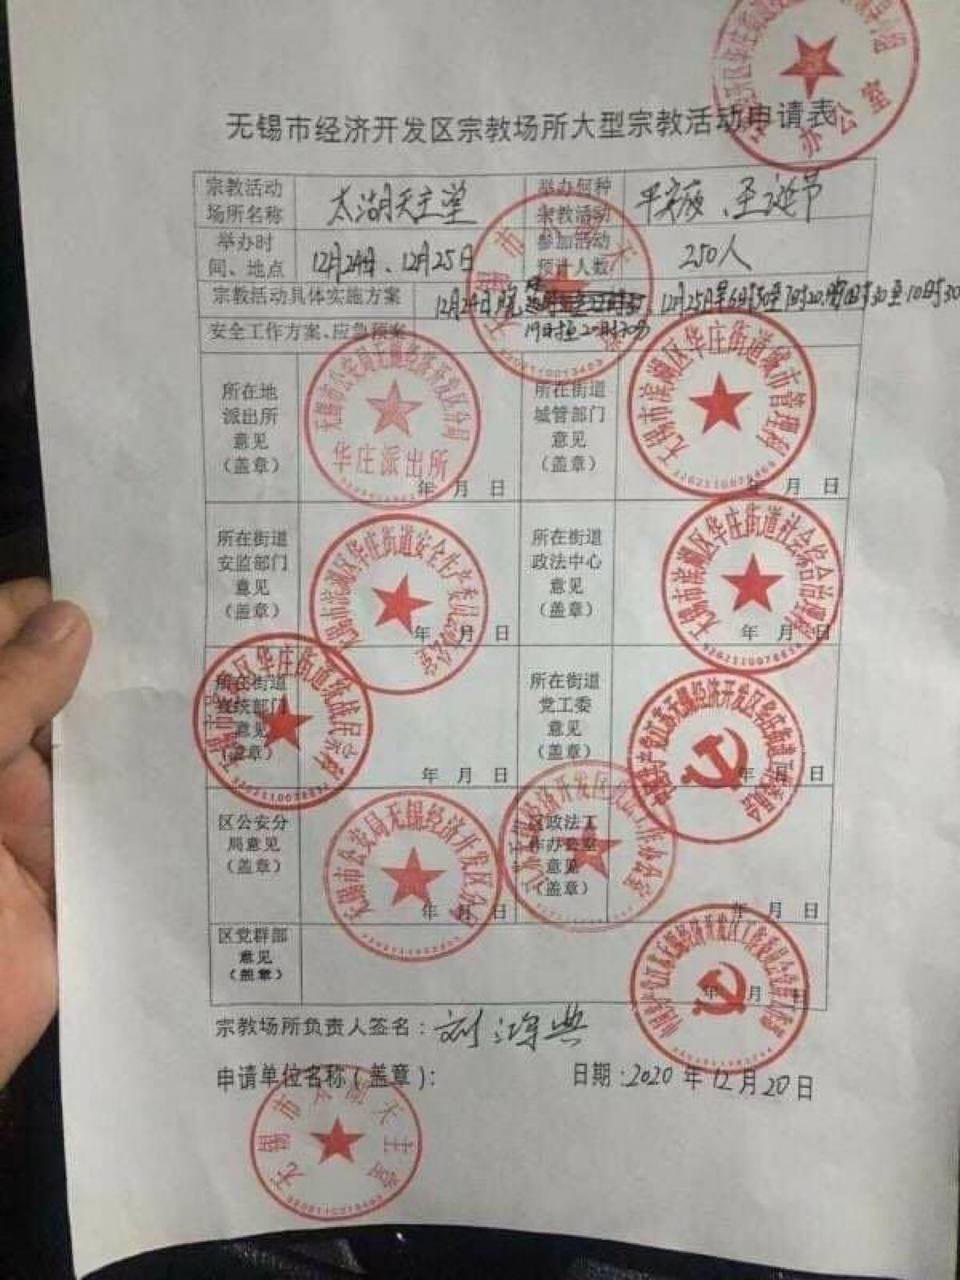 办公室
无锡市经济开发区宗教场所大型宗教活动申请表
宗教活动场所名称 太湖天主堂 举办何种宗教活动 平安夜、圣诞节
举办时间、地点 12月24日、12月25日 参加活动预计人数 250人
宗教活动具体实施方案 12月24日晚
12月25日早6时30至7时20
安全工作方案、应急预案 19时至20时30分
所在地派出所意见（盖章） 年 月 日 所在街道城管部门意见（盖章） 年 月 日
无锡市公安局无锡经济开发区分局
华庄派出所
无锡市滨湖区华庄街道城市管理科
所在街道安监部门意见（盖章） 年 月 日 所在街道政法中心意见（盖章） 年 月 日
无锡市滨湖区华庄街道安全生产委员会办公室
无锡市滨湖区华庄街道社会综合治理
所在街道宣统部门意见（盖章） 年 月 日 所在街道党工委意见（盖章） 年 月 日
区公安分局意见（盖章） 年 月 日 区政法工作办公室意见（盖章） 年 月 日
无锡市公安局无锡经济开发区分局
区党群部意见（盖章） 年 月 日
宗教场所负责人签名：刘鸿典
申请单位名称（盖章）： 日期：2020年12月20日
无锡市太湖天主堂